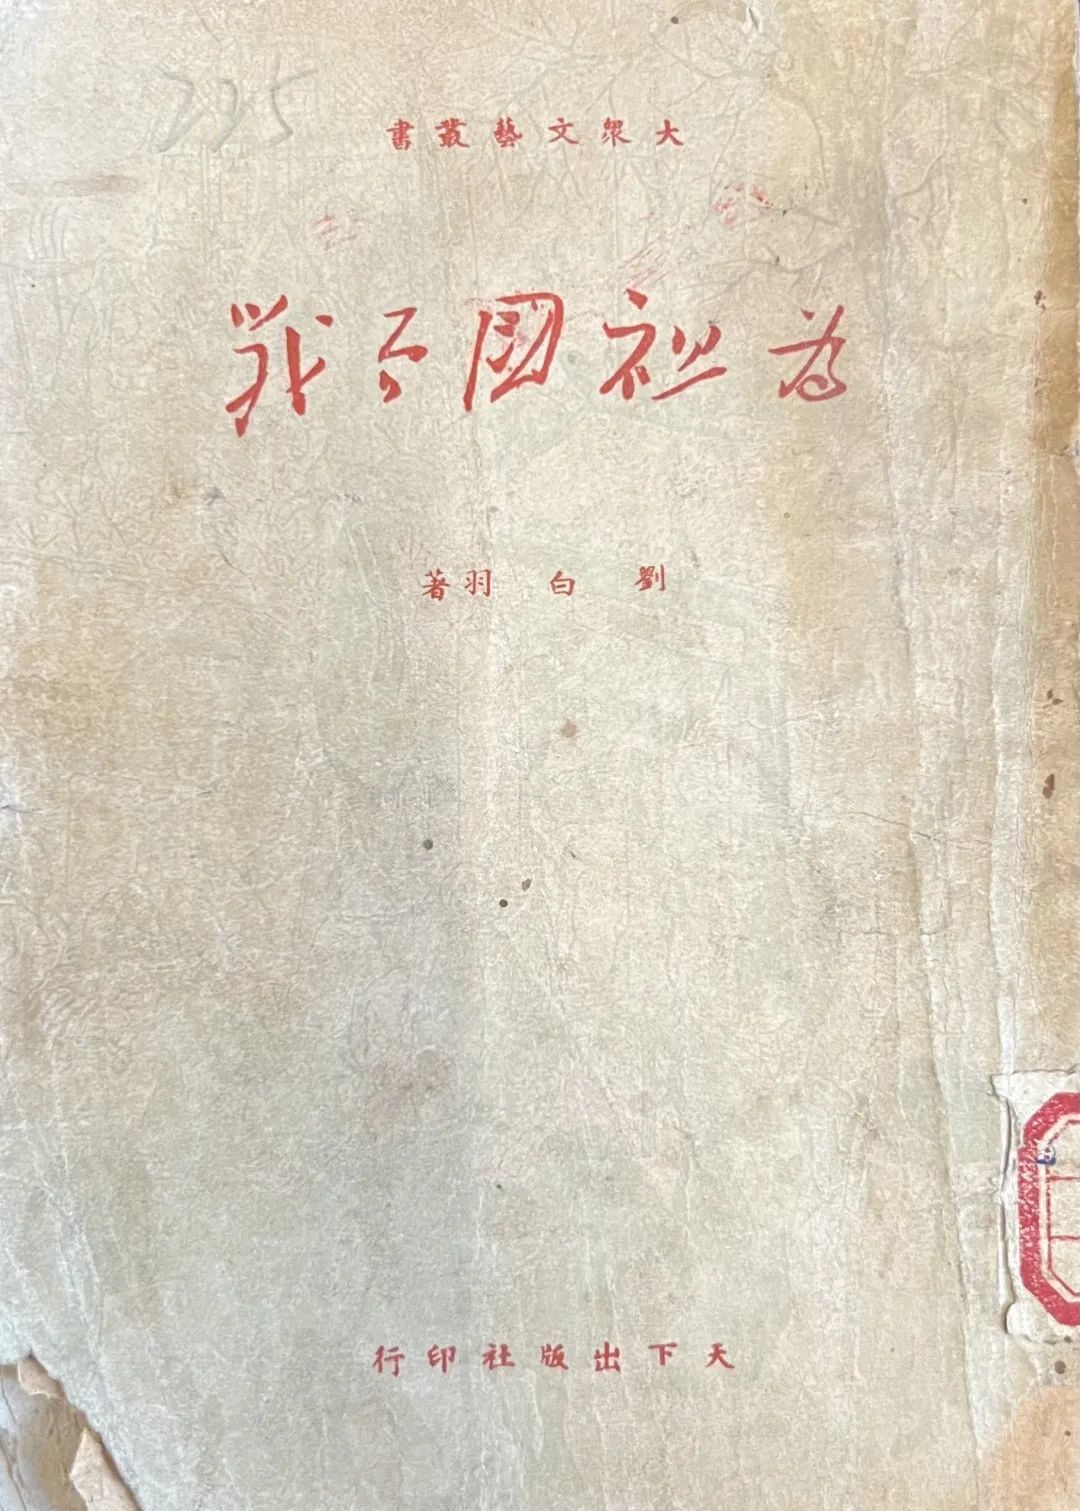 225
大眾文藝叢書
為祖國而戰
劉白羽著
天下出版社印行